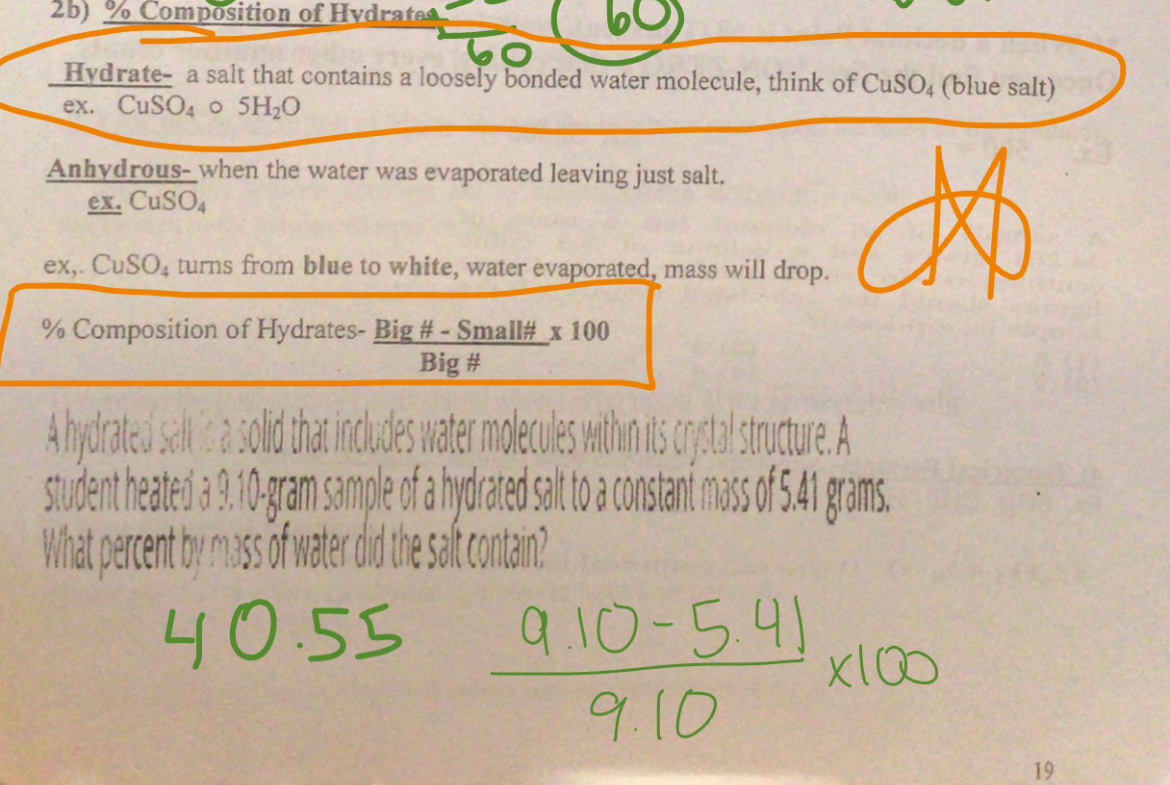 2b) % Composition of Hydrates
60
60
Hydrate- a salt that contains a loosely bonded water molecule, think of CuSO₄ (blue salt)
ex. CuSO₄ o 5H₂O
Anhydrous- when the water was evaporated leaving just salt.
ex. CuSO₄
ex,. CuSO₄ turns from blue to white, water evaporated, mass will drop.
% Composition of Hydrates- Big # - Small# x 100
Big #
A hydrated salt is a solid that includes water molecules within its crystal structure. A
student heated a 9.10-gram sample of a hydrated salt to a constant mass of 5.41 grams.
What percent by mass of water did the salt contain?
40.55
9.10-5.41
x100
9.10
19